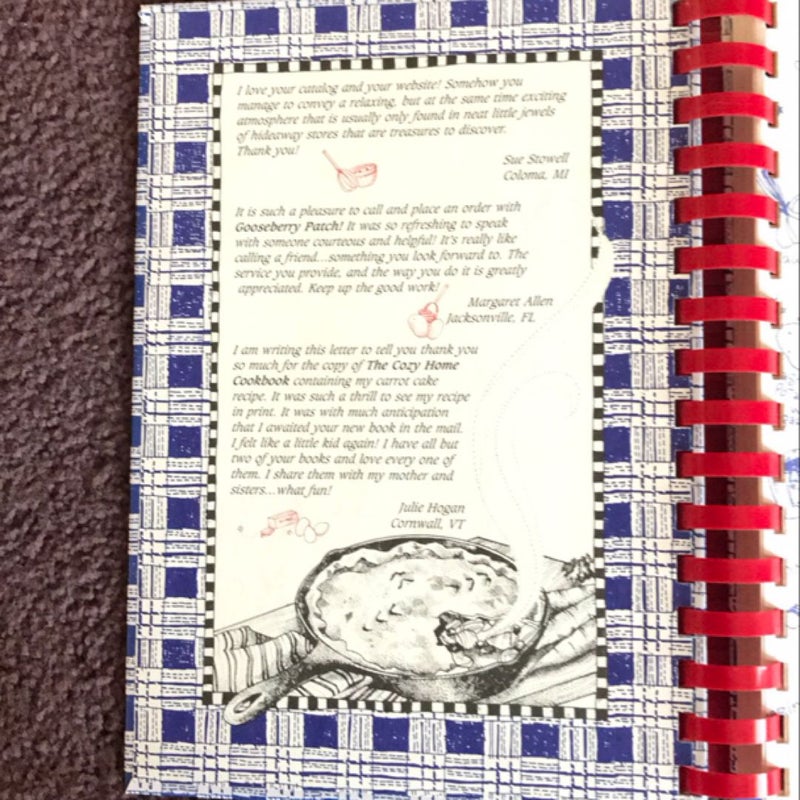 I love your catalog and your website! Somehow you
manage to convey a relaxing, but at the same time exciting
atmosphere that is usually only found in neat little jewels
of hideaway stores that are treasures to discover.
Thank you!
Sue Stowell
Coloma, MI
It is such a pleasure to call and place an order with
Gooseberry Patch! It was so refreshing to speak
with someone courteous and helpful! It's really like
calling a friend...something you look forward to. The
service you provide, and the way you do it is greatly
appreciated. Keep up the good work!
Margaret Allen
Jacksonville, FL
I am writing this letter to tell you thank you
so much for the copy of The Cozy Home
Cookbook containing my carrot cake
recipe. It was such a thrill to see my recipe
in print. It was with much anticipation
that I awaited your new book in the mail.
I felt like a little kid again! I have all but
two of your books and love every one of
them. I share them with my mother and
sisters...what fun!
Julie Hogan
Cornwall, VT